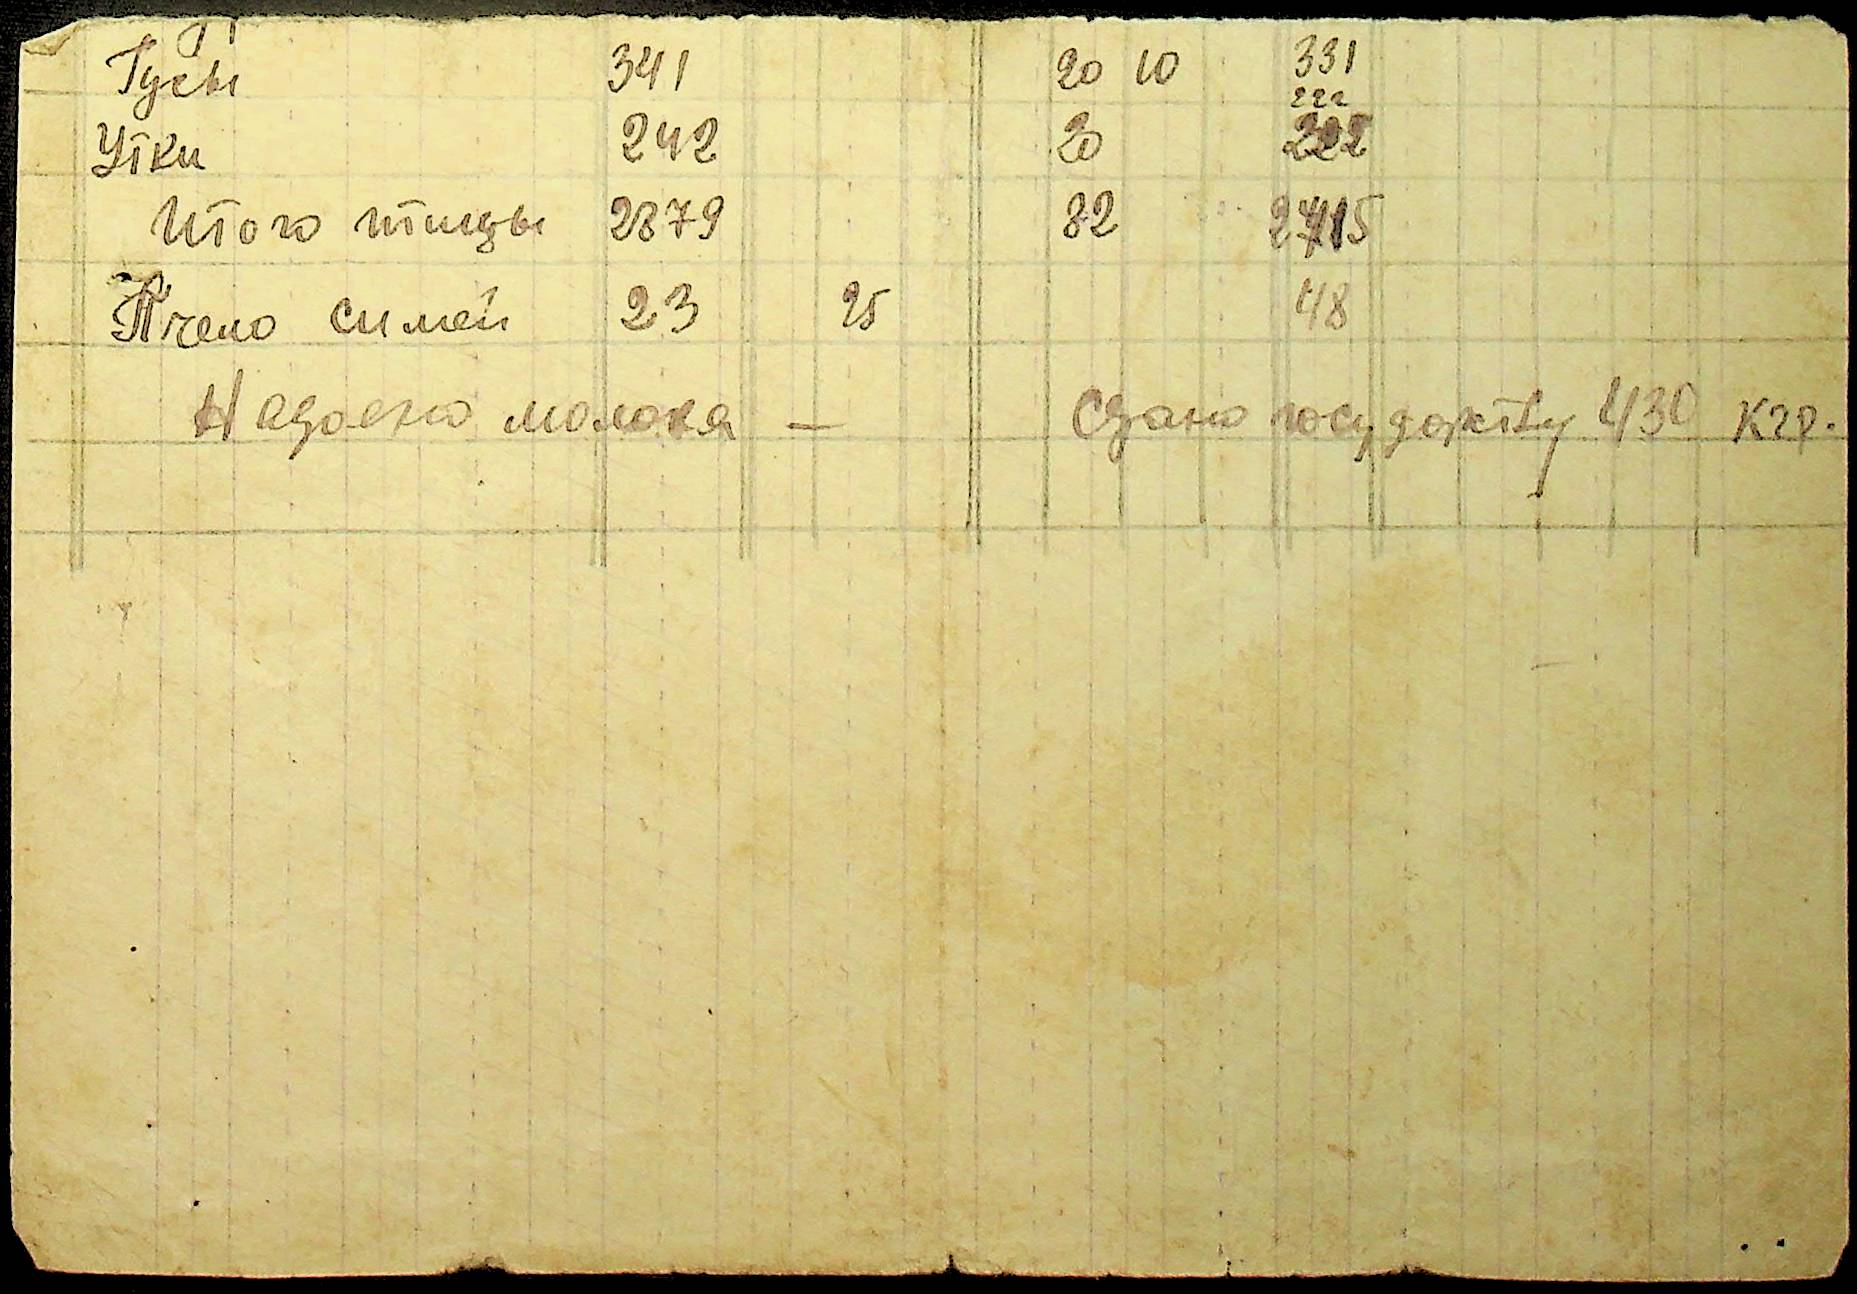 Гусы 341 20 10 331
222
Утки 242 20 222
Итого птицы 2879 82 2715
Пчело симей 23 25 48
Надоено молока — Сдано государству 430 кгр.